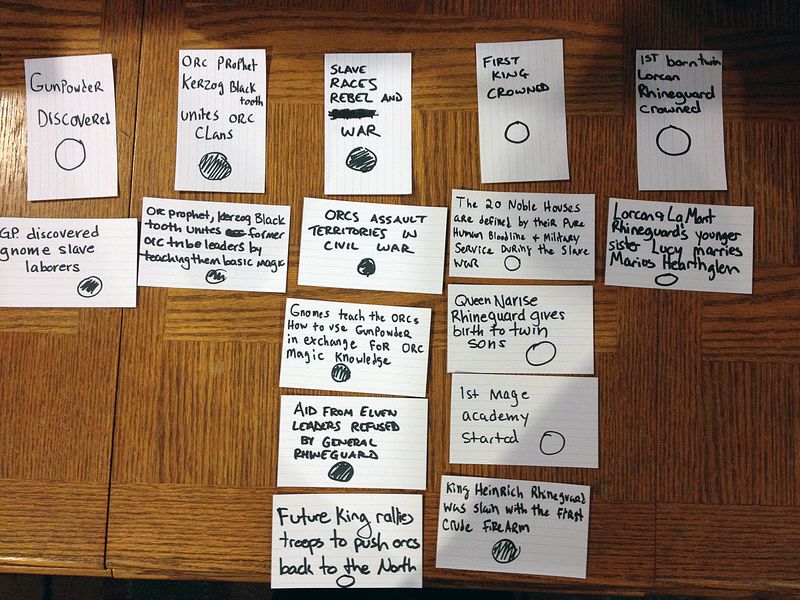 GUNPOWDER
DISCOVERED
ORC PROPHET
Kerzog Black
tooth
unites ORC
CLANS
SLAVE
RACES
REBEL AND
WAR
FIRST
KING
CROWNED
1ST born twin
Lorcan
Rhineguard
crowned
G.P. discovered
gnome slave
laborers
Orc prophet, Kerzog Black
tooth unites former
orc tribe leaders by
teaching them basic magic
ORCS ASSAULT
TERRITORIES IN
CIVIL WAR
The 20 Noble Houses
are defined by their Pure
Human Bloodline + Military
Service During the Slave
War
Lorcan & LaMont
Rhineguard's younger
sister Lucy marries
Marios Hearthglen
Gnomes teach the ORCs
How to use Gunpowder
in exchange for ORC
Magic Knowledge
Queen Narise
Rhineguard gives
birth to twin
sons
AID FROM ELVEN
LEADERS REFUSED
BY GENERAL
RHINEGUARD
1st Mage
academy
started
Future King rallies
treeps to push orcs
back to the North
King Heinrich Rhineguard
was slain with the first
crude firearm